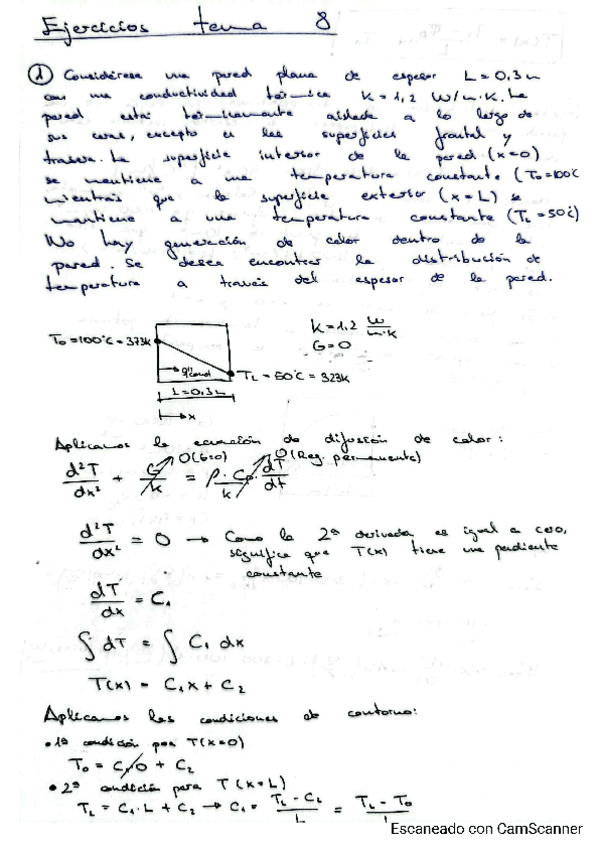 Ejercicios tema 8
① Considérese una pared plana de espesor L = 0,3 m
con una conductividad térmica K = 1,2 W/m·K. La
pared está térmicamente aislada a lo largo de
sus caras, excepto en las superficies frontal y
trasera. La superficie interior de la pared (x=0)
se mantiene a una temperatura constante (T₀=100ºC
mientras que la superficie exterior (x=L) se
mantiene a una temperatura constante (T_L = 50ºC)
No hay generación de calor dentro de la
pared. Se desea encontrar la distribución de
temperatura a través del espesor de la pared.
K = 1,2 W/m·K
G = 0
T₀=100ºC = 373K
q''cond
T_L = 50ºC = 323K
L = 0,3 m
x
Aplicamos la ecuación de difusión de calor:
0 (G=0) 0 (Reg. permanente)
d²T/dx² + G/k = ρ·Cp/k · dT/dt
d²T/dx² = 0 → Como la 2ª derivada es igual a cero,
significa que T(x) tiene una pendiente
constante
dT/dx = C₁
∫ dT = ∫ C₁ dx
T(x) = C₁x + C₂
Aplicamos las condiciones de contorno:
• 1ª condición para T(x=0)
T₀ = C₁·0 + C₂
• 2ª condición para T(x=L)
T_L = C₁·L + C₂ → C₁ = (T_L - C₂)/L = (T_L - T₀)/L
Escaneado con CamScanner